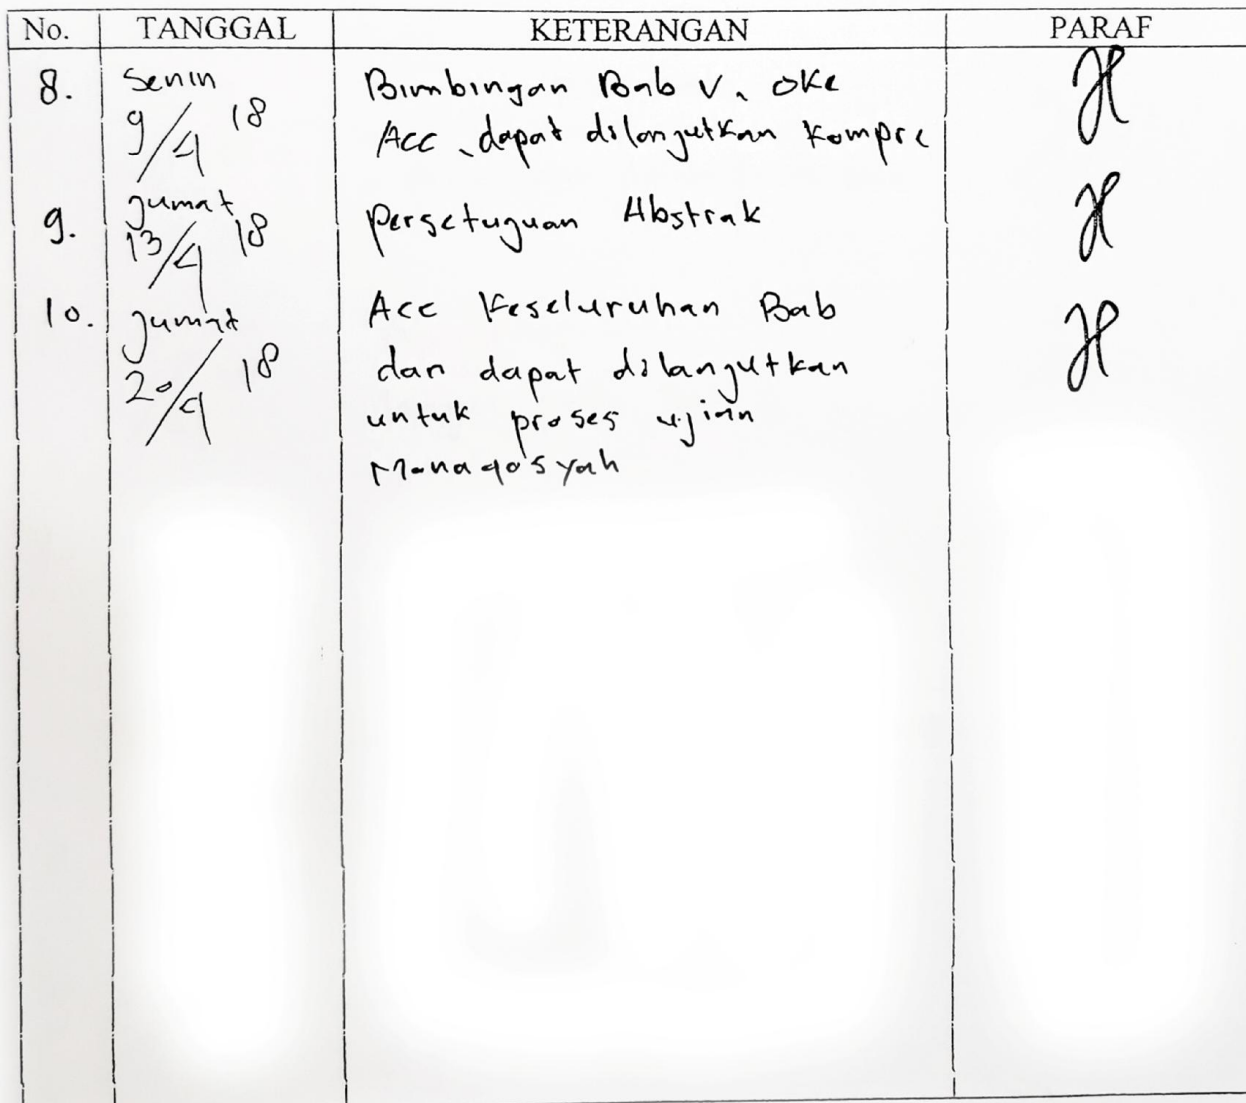 No. TANGGAL KETERANGAN PARAF
8. Senin Bimbingan Bab V. oke
9/4 18 Acc, dapat dilanjutkan Kompre
9. Jumat Persetujuan Abstrak
13/4 18
10. Jumat Acc Keseluruhan Bab
20/4 18 dan dapat dilanjutkan
untuk proses ujian
Munaqosyah